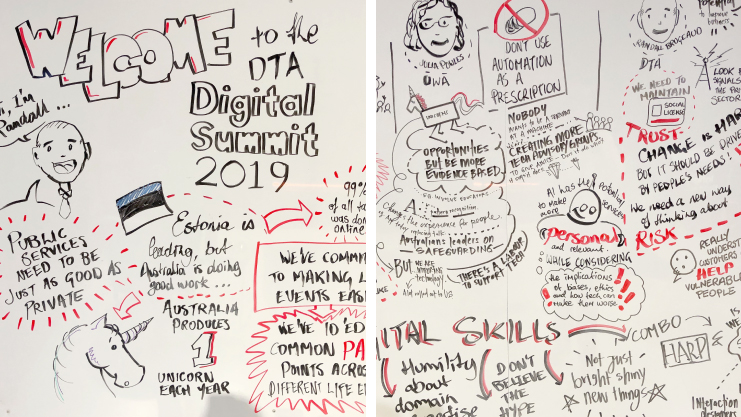 WELCOME
to the
DTA
Digital
Summit
2019
Hi, I'm
Randall ...
PUBLIC
SERVICES
NEED TO BE
JUST AS GOOD AS
PRIVATE
Estonia is
leading, but
Australia is doing
good work ...
99%
of all ta
was don
online
WE'VE COMMI
TO MAKING L
EVENTS EASI
AUSTRALIA
PRODUCES
1
UNICORN
EACH YEAR
WE'VE ID'ED
COMMON PA
POINTS ACROS
DIFFERENT LIFE E
JULIA POWLES
UWA
DON'T USE
AUTOMATION
AS A
PRESCRIPTION
RANDALL BRUGEAUD
DTA
LOOK
SIGNALS
THE PRI
SECTOR
WE NEED TO
MAINTAIN
SOCIAL
LICENSE
TRUST
CHANGE is HAR
BUT IT SHOULD BE DRIVE
BY PEOPLE'S NEEDS!
We need a new way
of thinking about
RISK
UNICORNS
OPPORTUNITIES
BUT BE MORE
EVIDENCE BASED
NOBODY
CREATING MORE
TECH ADVISORY GROUPS
pattern recognition
Change the experience for people
Australians leaders on
SAFEGUARDING
BUT
THERE'S A LABOUR
TO SUPPORT TECH
AI has the potential
to make services
more
personal
and relevant
WHILE CONSIDERING
the implications
of biases, ethics
and how tech can
make them worse
REALLY
UNDERST
CUSTOMERS
HELP
VULNERABLE
PEOPLE
ITAL SKILLS
COMBO
HARD
Humility
about
domain
DON'T
BELIEVE
THE
HYPE
Not just
bright shiny
new things
Interaction